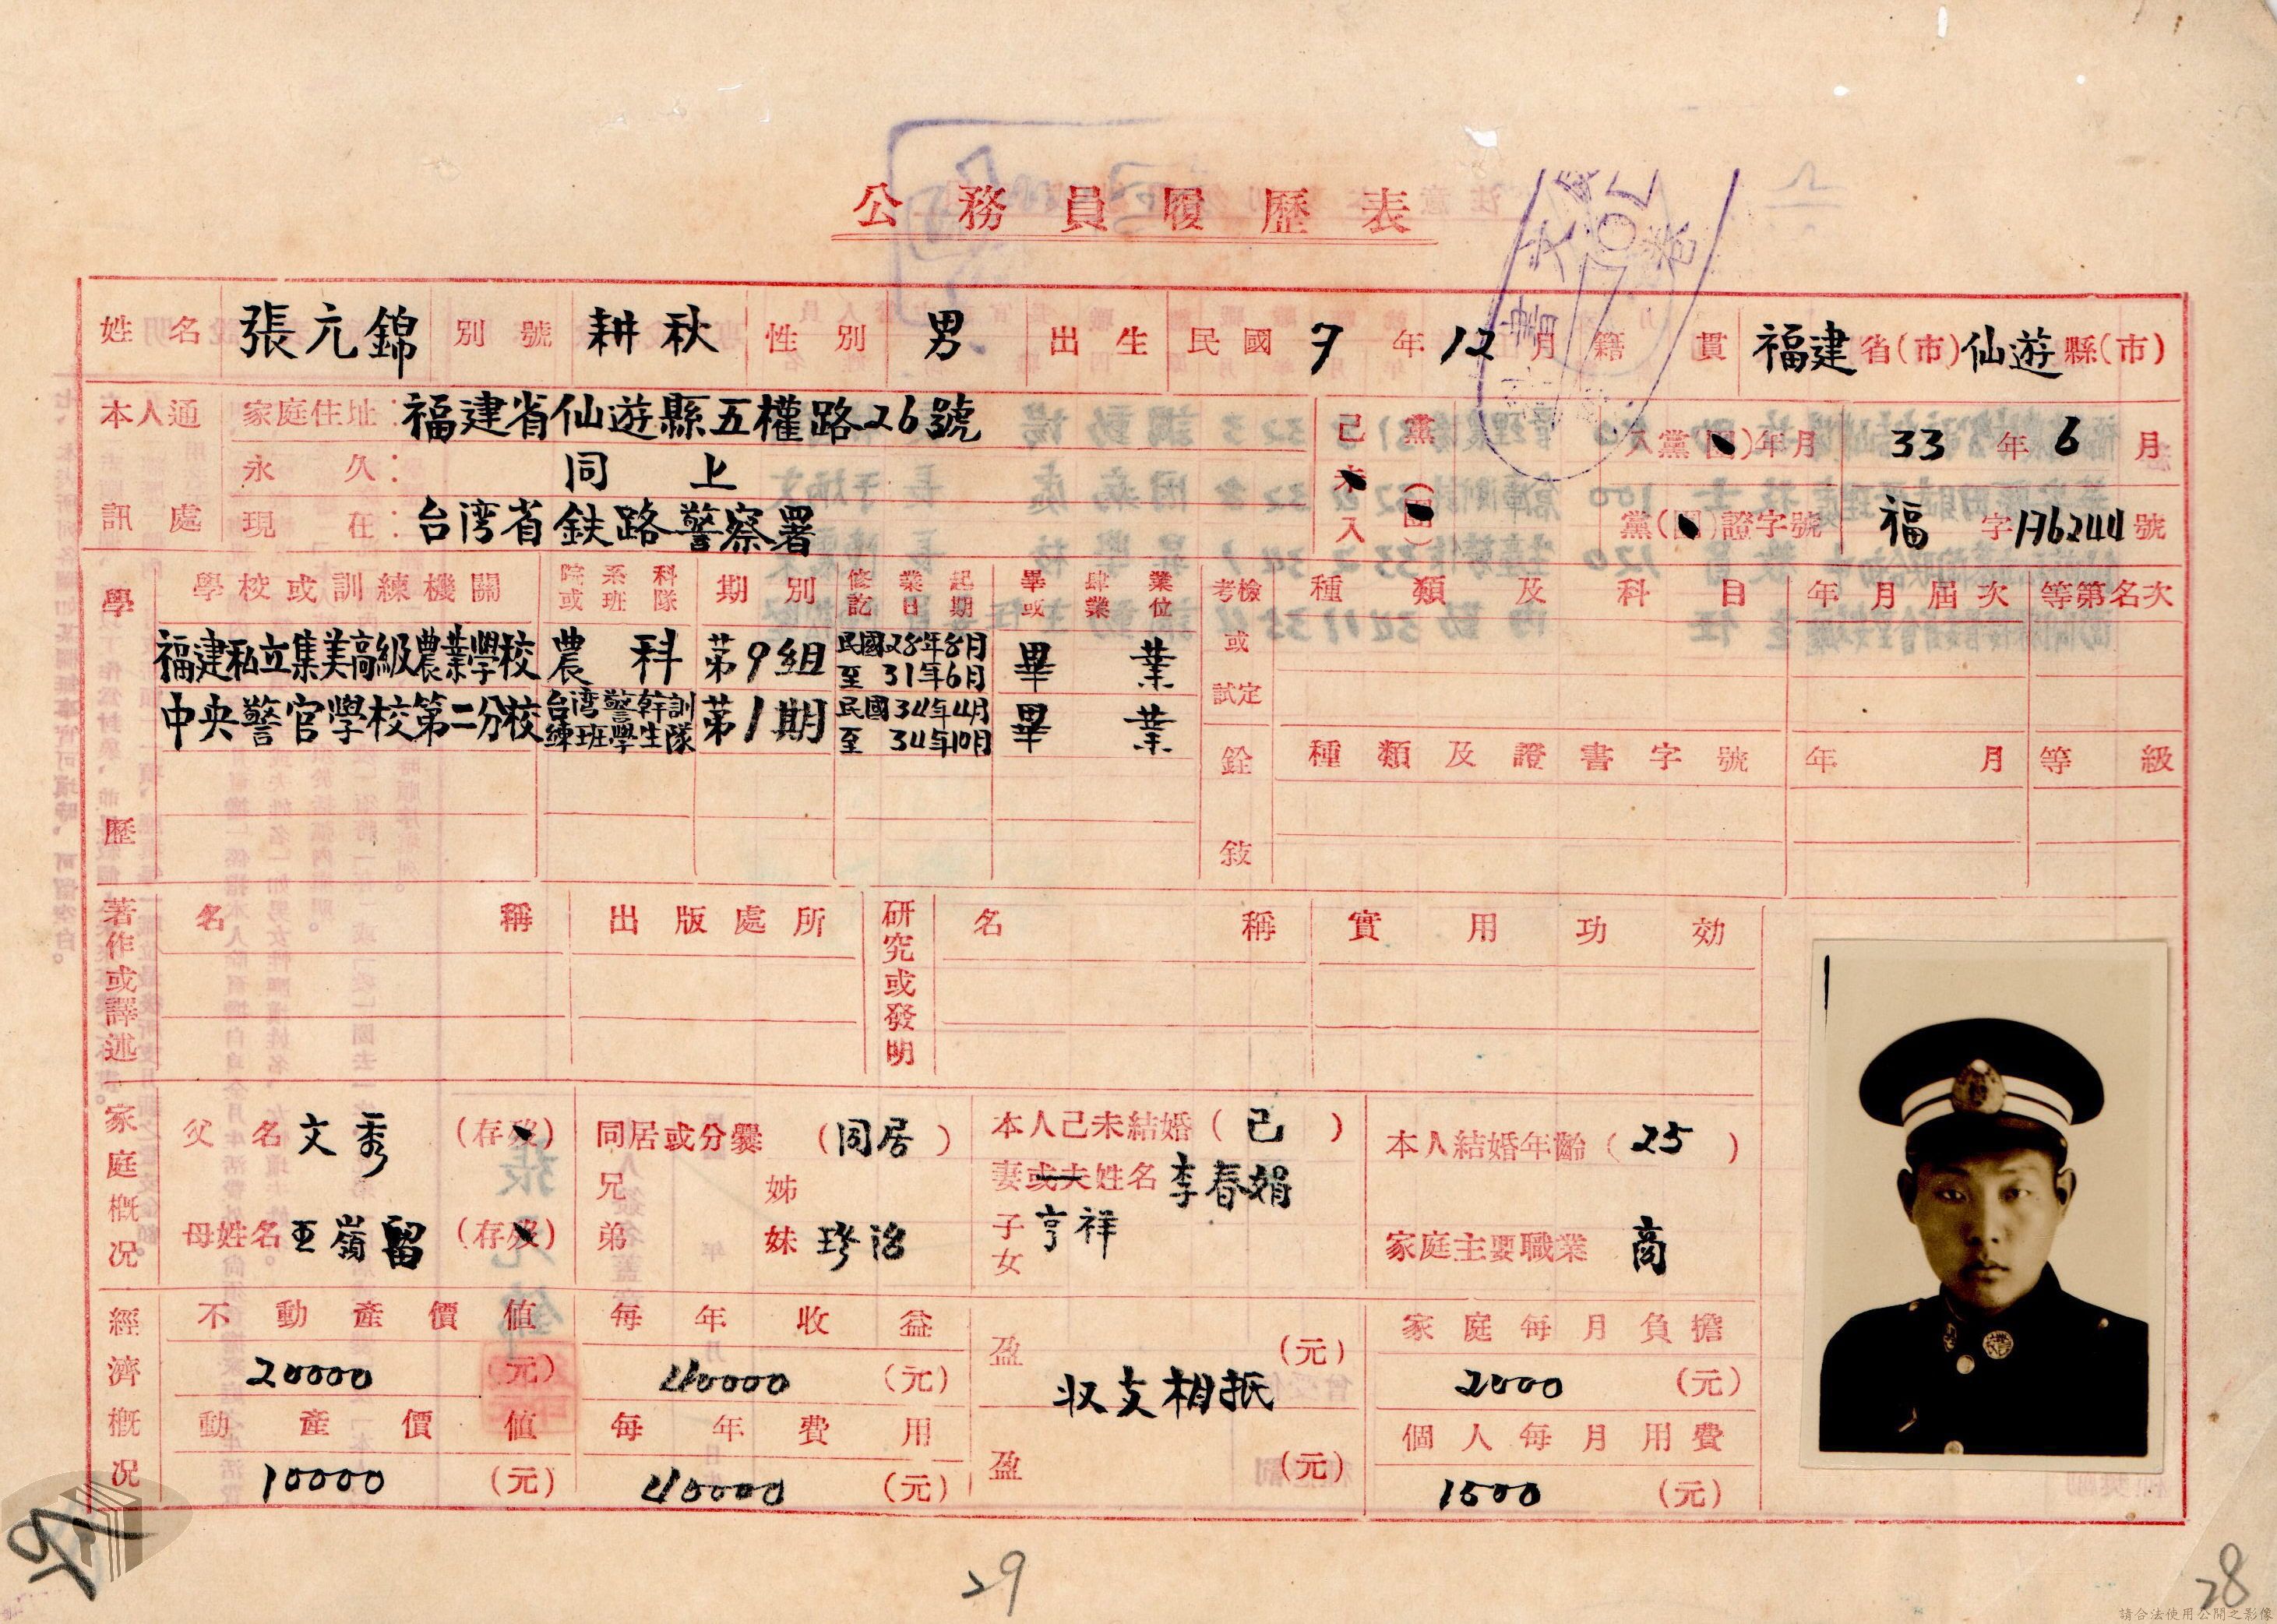 公務員履歷表
姓名 張元錦 別號 耕秋 性別 男 出生 民國 7 年 12 月 籍貫 福建 省(市) 仙遊 縣(市)
本人通訊處 家庭住址：福建省仙遊縣五權路26號
永久：同上
現在：台湾省鉄路警察署
已未入 黨(團) 入黨(團)年月 33 年 6 月
黨(團)證字號 福 字 176244 號
學歷 學校或訓練機關 院系科或班隊 期別 修業起訖日期 畢肄業或業位
福建私立集美高級農業學校 農科 第9組 民國28年8月至31年6月 畢業
中央警官學校第二分校 台湾警幹訓練班學生隊 第1期 民國34年4月至34年10月 畢業
考檢或試定 種類及科目 年月屆次 等第名次
銓敍 種類及證書字號 年月 等級
著作或譯述 名稱 出版處所
研究或發明 名稱 實用功効
家庭概况 父名 文秀 (存歿) 同居或分爨 (同居) 本人已未結婚 (已) 本人結婚年齡 (25)
兄 姊 妻或夫姓名 李春娟
母姓名 嶺留 (存歿) 弟 妹 珍治 子女 亨祥 家庭主要職業 商
經濟概况 不動產價值 每年收益 盈 (元) 家庭每月負擔
20000 (元) 40000 (元) 收支相抵 2000 (元)
動產價值 每年費用 盈 (元) 個人每月用費
10000 (元) 40000 (元) 1500 (元)
29
28
請合法使用公開之影像